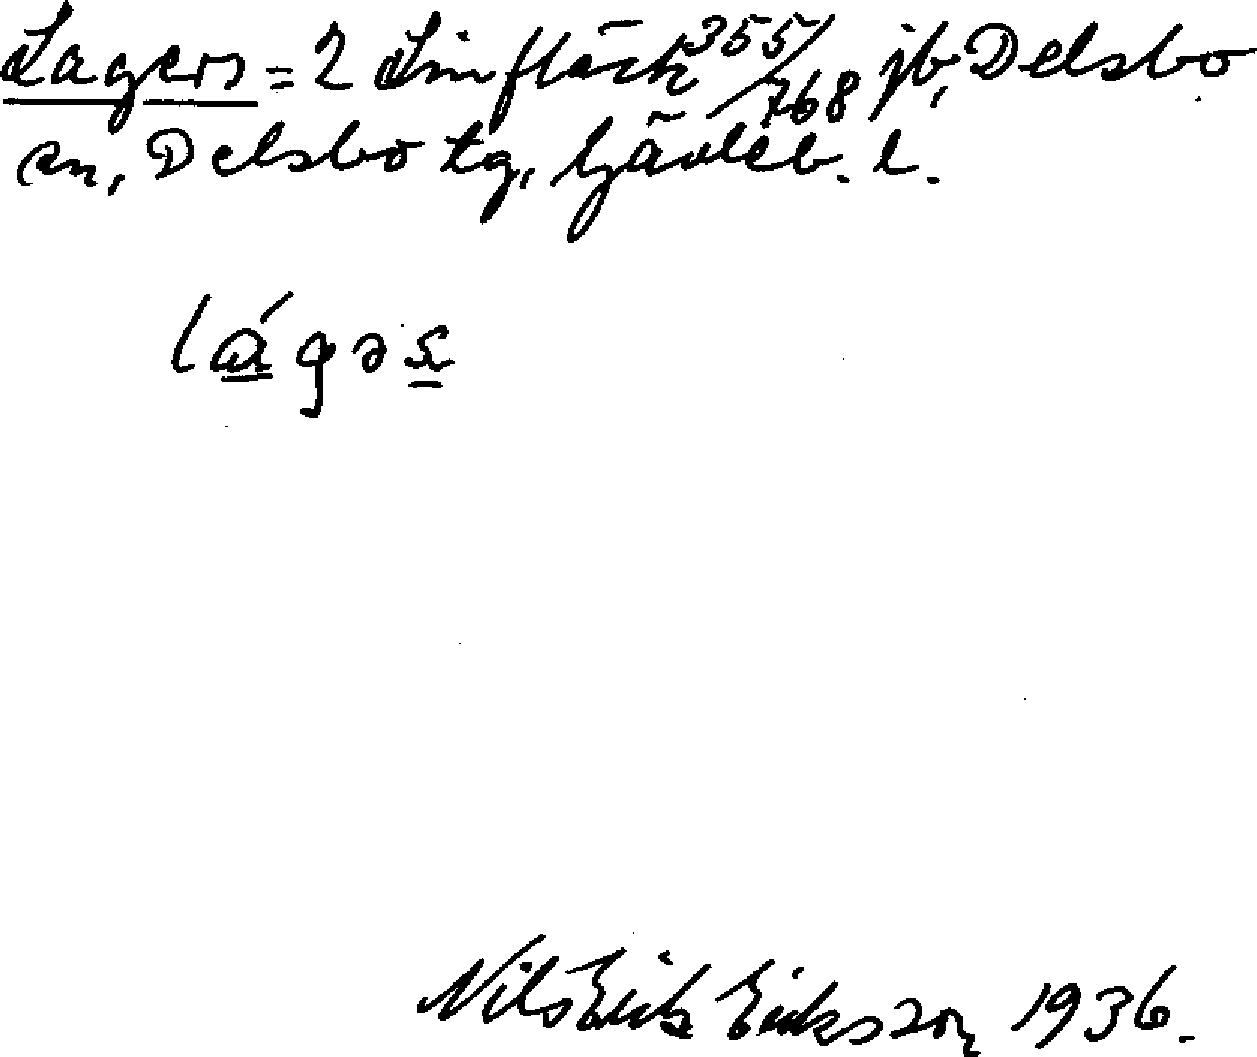 Lagers = 2 Simfläck 355/768 jb, Delsbo
sn, Delsbo tg, Gävleb. l.
lágəs
Nils Erik Eriksson 1936.